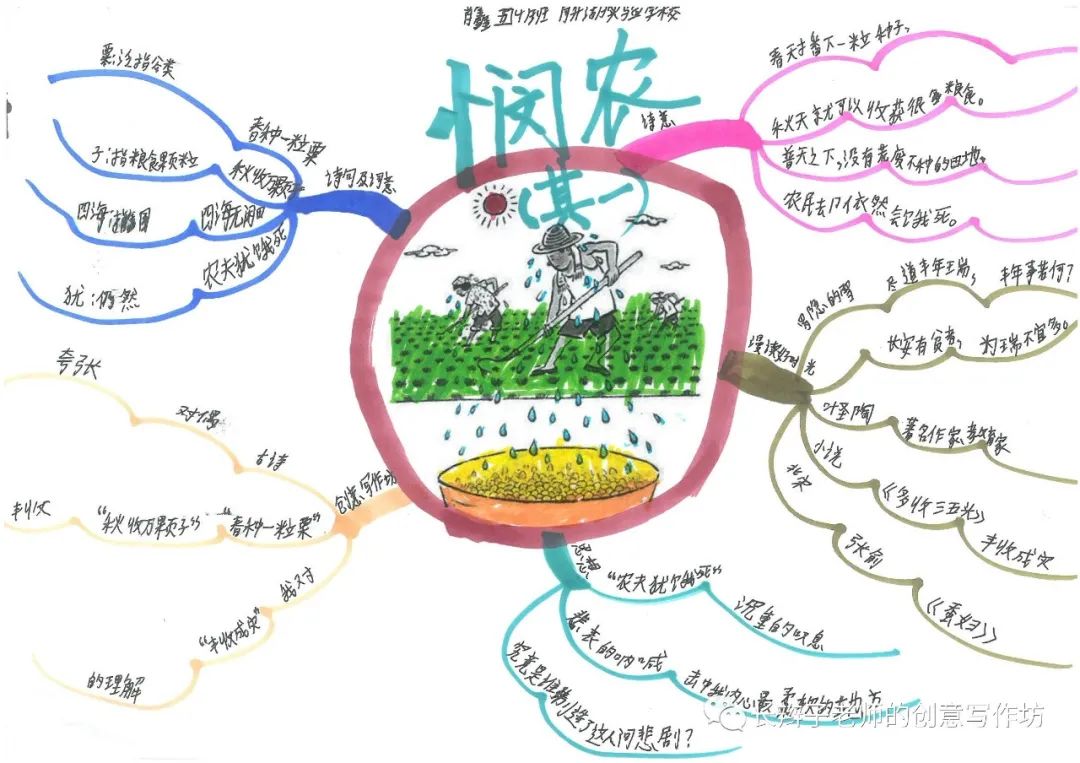 悯农
(其一)
诗句及词意
春种一粒粟
粟:泛指谷类
秋收万颗子
子:指粮食颗粒
四海无闲田
四海:指
农夫犹饿死
犹:仍然
诗意
春天播下一粒种子,
秋天就可以收获很多粮食。
普天之下,没有荒废不种的田地,
农民却依然会饿死。
漫读好时光
罗隐的雪
尽道丰年瑞,
丰年事若何?
长安有贫者,
为瑞不宜多。
叶圣陶
著名作家、教育家
小说
《多收三五斗》
丰收成灾
张俞
《蚕妇》
思想
“农夫犹饿死”
沉重的叹息
悲哀的呐喊
击中我内心最柔软的部分
究竟是谁制造了这人间悲剧?
创意写作坊
古诗
对偶
夸张
“春种一粒粟”
“秋收万颗子”
丰收
我对
“丰收成灾”
的理解
老师的创意写作坊